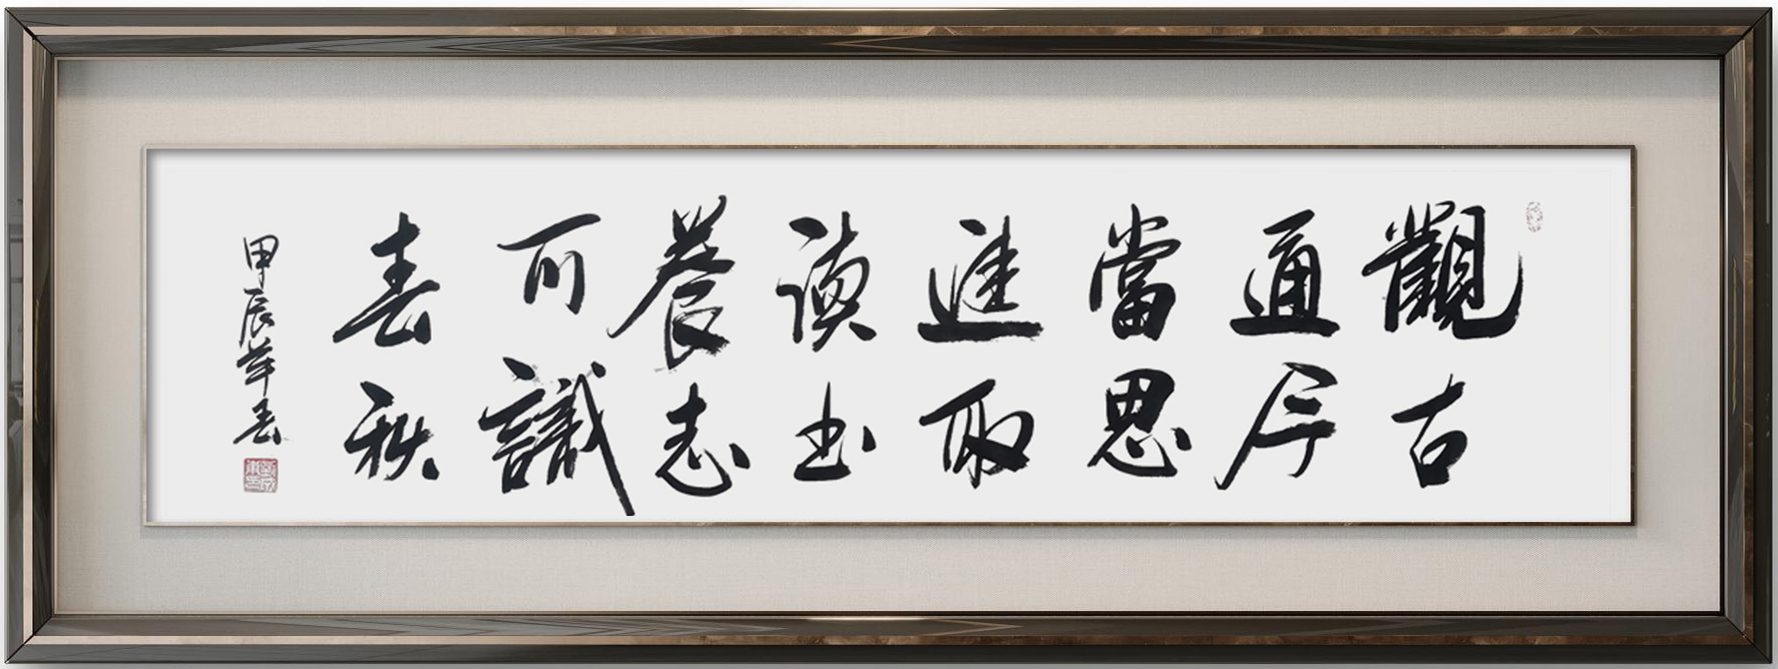 觀古
通今
當思
進取
讀書
養志
可識
春秋
甲辰年春